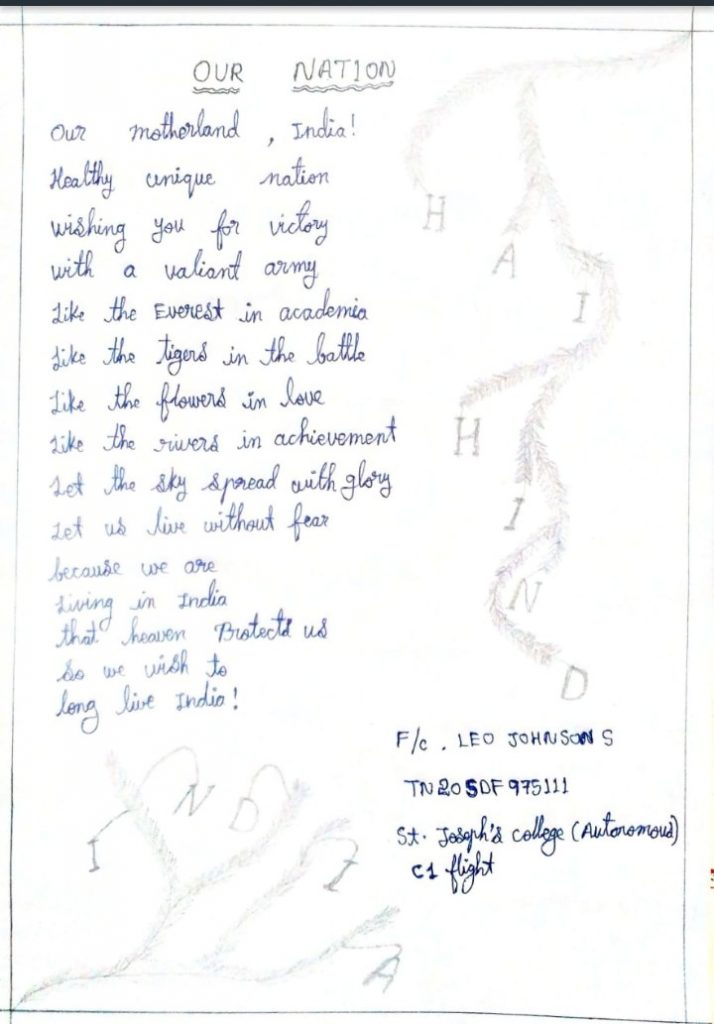 OUR NATION
Our motherland, India!
Healthy unique nation
wishing you for victory
with a valiant army
Like the Everest in academia
Like the tigers in the battle
Like the flowers in love
Like the rivers in achievement
Let the sky spread with glory
Let us live without fear
because we are
Living in India
that heaven Protects us
So we wish to
long live India!
H
A
I
H
I
N
D
F/c. LEO JOHNSON S
TN20SDF975111
St. Joseph's college (Autonomous)
C1 flight
I
N
D
I
A